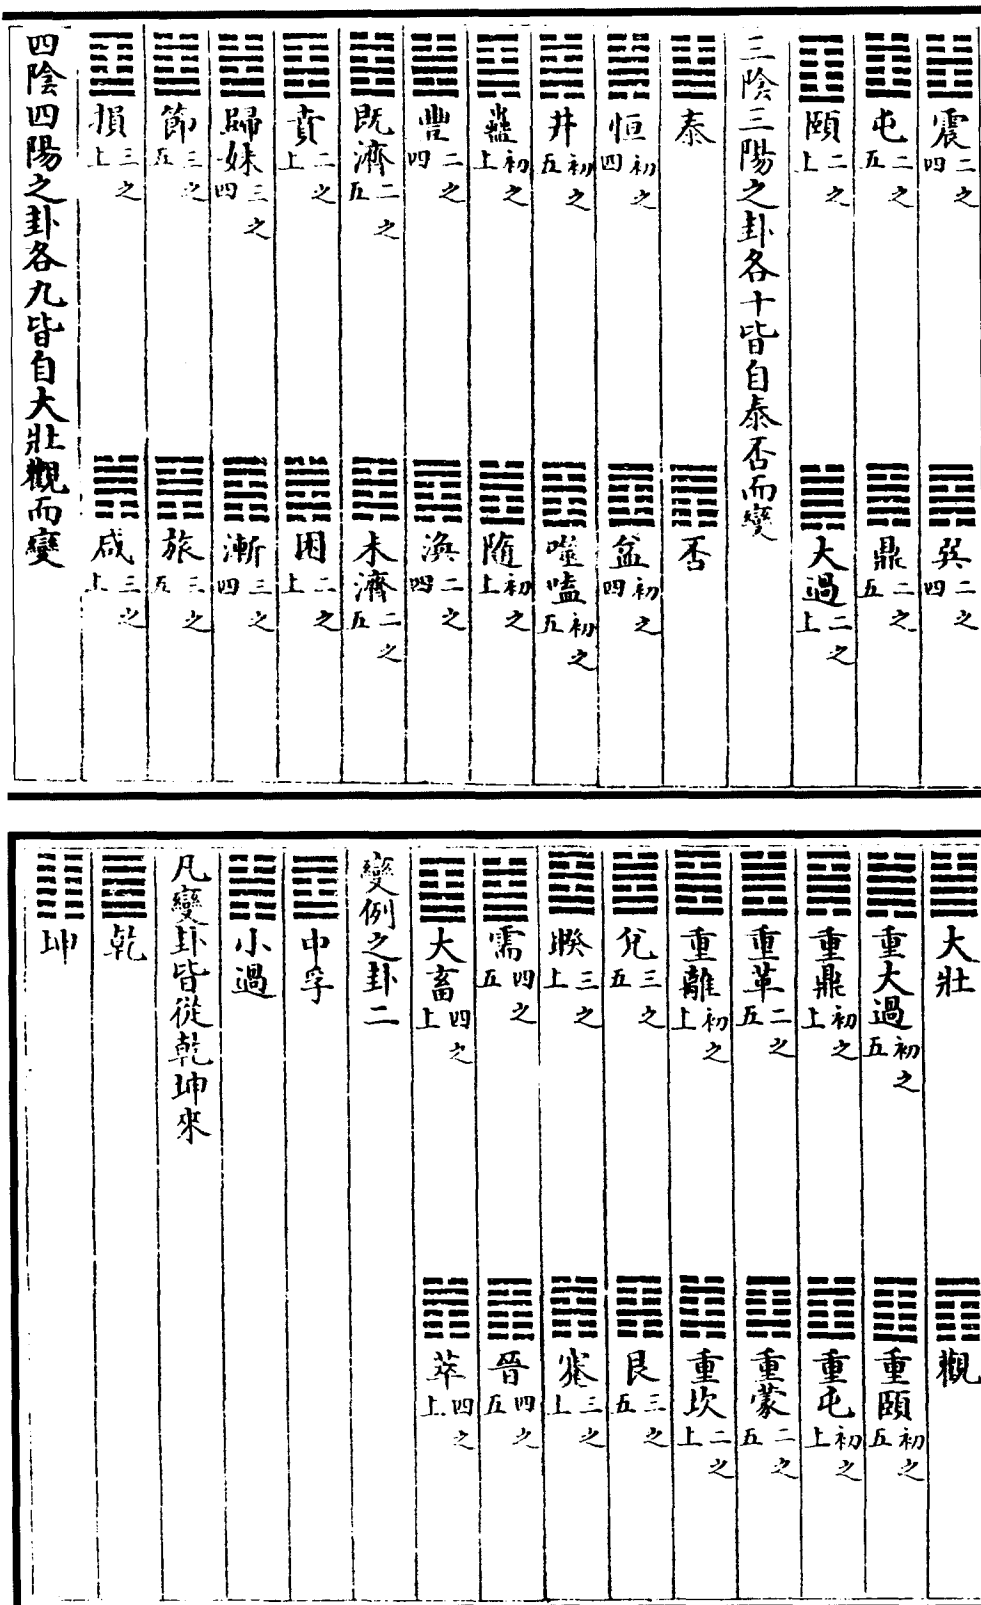 震二之四 巽二之四
屯二之五 鼎二之五
頤二之上 大過二之上
三陰三陽之卦各十皆自泰否而變
泰 否
恒初之四 益初之四
井初之五 噬嗑初之五
蠱初之上 隨初之上
豐二之四 渙二之四
既濟二之五 未濟二之五
賁二之上 困二之上
歸妹三之四 漸三之四
節三之五 旅三之五
損三之上 咸三之上
四陰四陽之卦各九皆自大壯觀而變
大壯 觀
重大過初之五 重頤初之五
重鼎初之上 重屯初之上
重革二之五 重蒙二之五
重離初之上 重坎二之上
兌三之五 艮三之五
睽三之上 蹇三之上
需四之五 晉四之五
大畜四之上 萃四之上
變例之卦二
中孚
小過
凡變卦皆從乾坤來
乾
坤